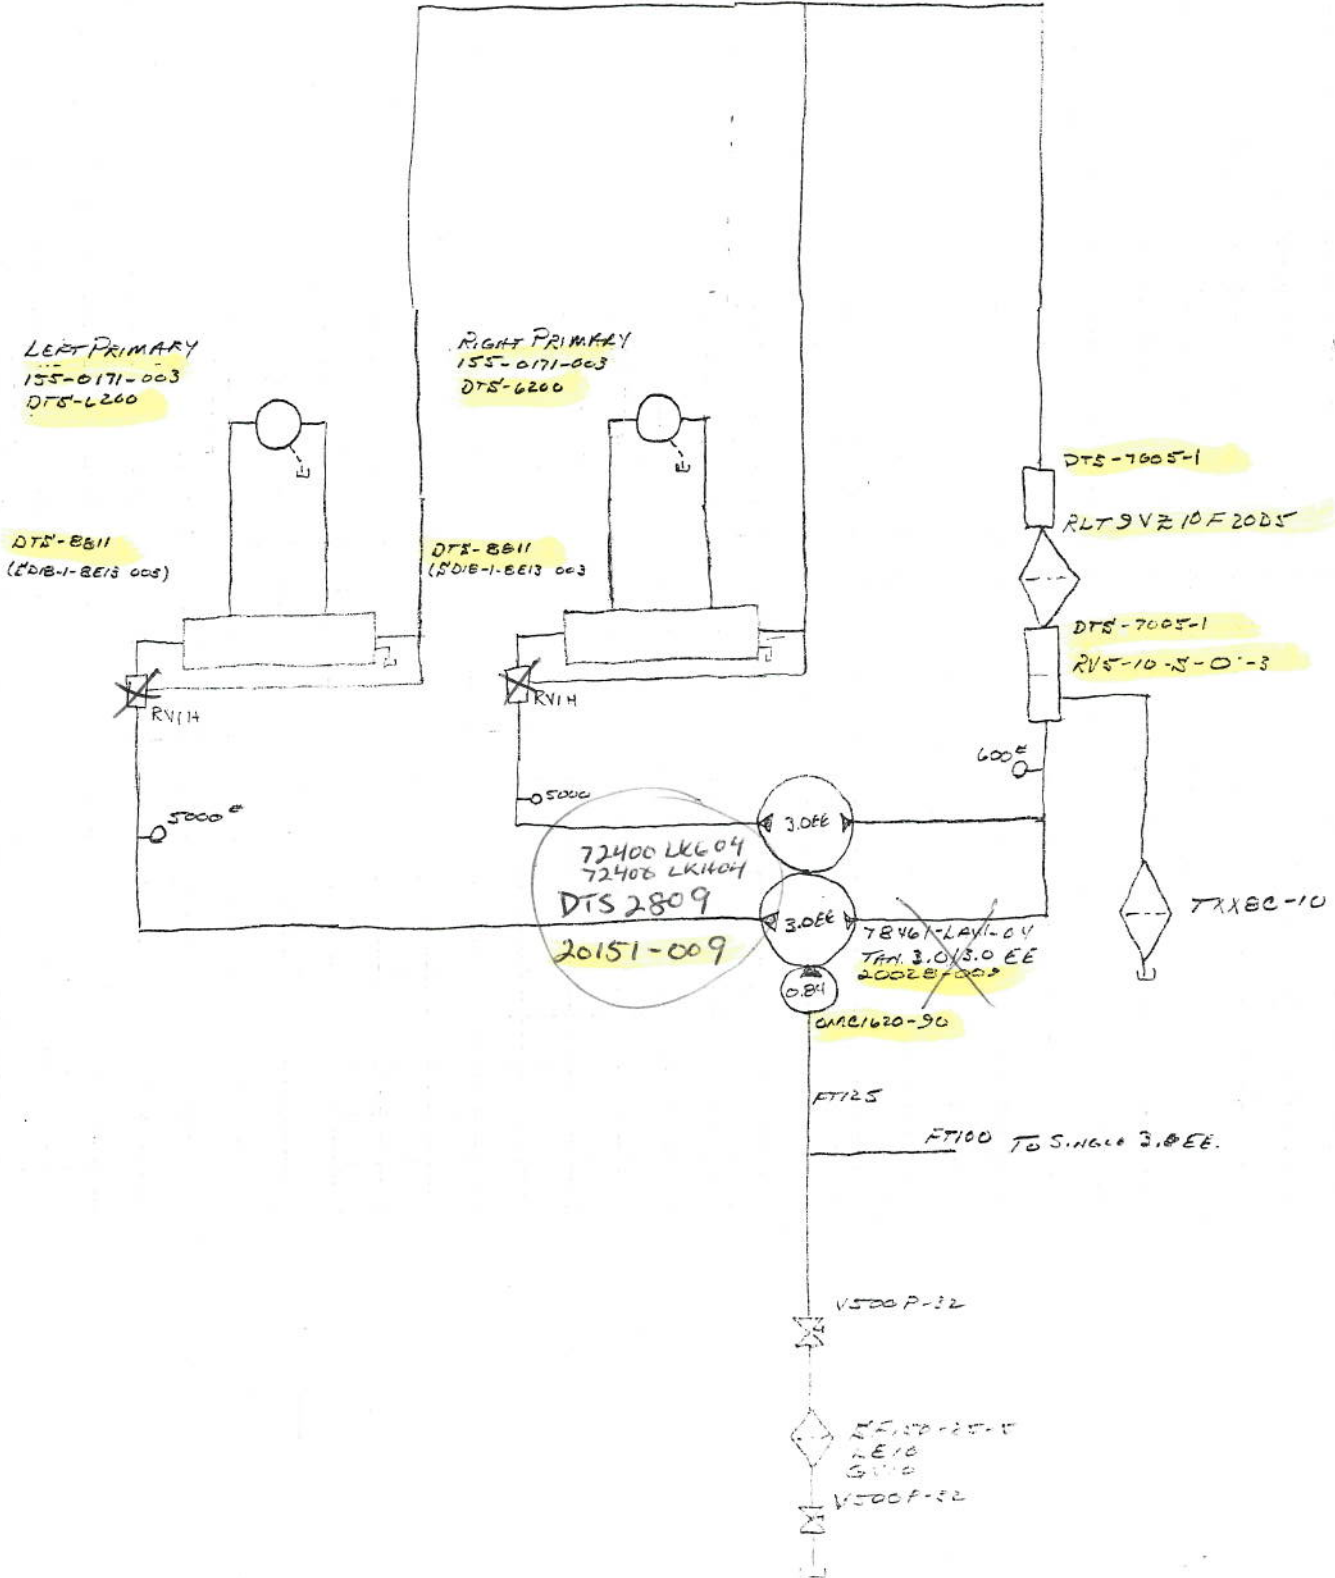 LEFT PRIMARY
155-0171-003
DTS-6200
RIGHT PRIMARY
155-0171-003
DTS-6200
DTS-7005-1
RLT9VZ10F20D5
DTS-8811
DTS-8811
DTS-7005-1
RV5-10-S-O-3
RV1H
RV1H
600#
5000#
5000
3.0EE
72400 LKG04
72400 LKH04
DTS 2809
20151-009
3.0EE
78461-LAY1-04
TAN. 3.0/3.0 EE
20028-009
0.84
OMC1620-90
FT125
FT100 TO SINGLE 3.0EE.
V500P-32
LE10
GV10
V500P-32